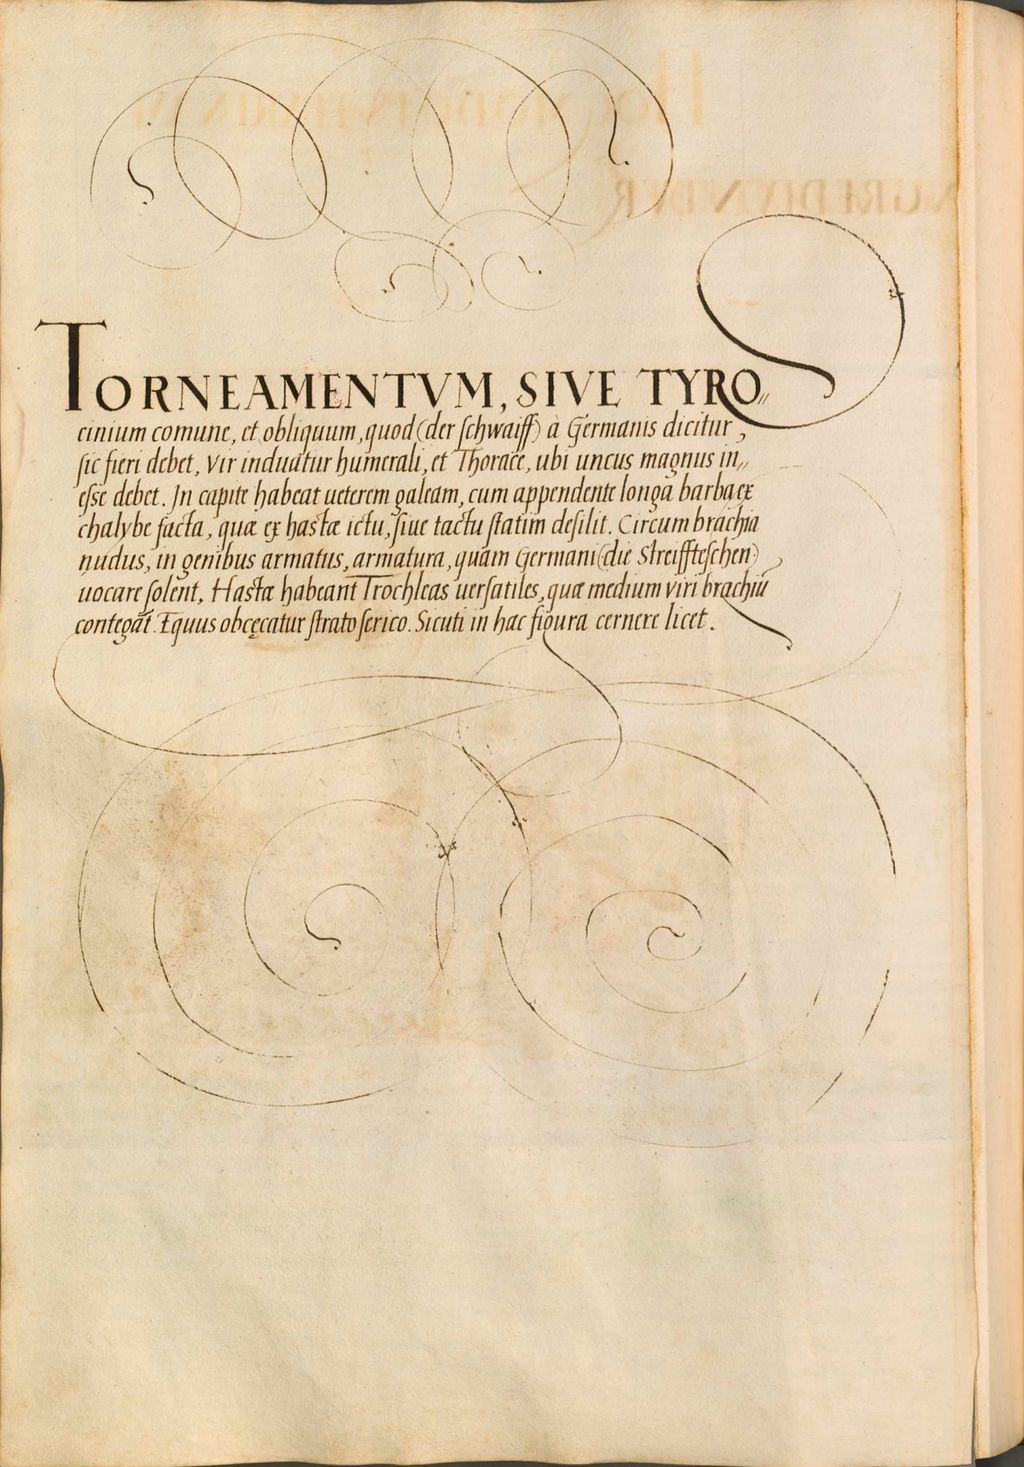 TORNEAMENTVM, SIVE TYRO„
cinium comune, et obliquum, quod (der schwaiff) à Germanis dicitur,
sic fieri debet, Vir induatur humerali, et Thorace, ubi uncus magnus in„
esse debet. In capite habeat ueterem galeam, cum appendente longa barba ex
chalybe facta, quæ ex hastæ ictu, siue tactu statim desilit. Circum brachia
nudus, in genibus armatus, armatura, quam Germani (die Streiffteschen)
uocare solent, Hastæ habeant Trochleas uersatiles, quæ medium viri brachiū
contegāt. Equus obcęcatur strato serico. Sicuti in hac figura cernere licet.